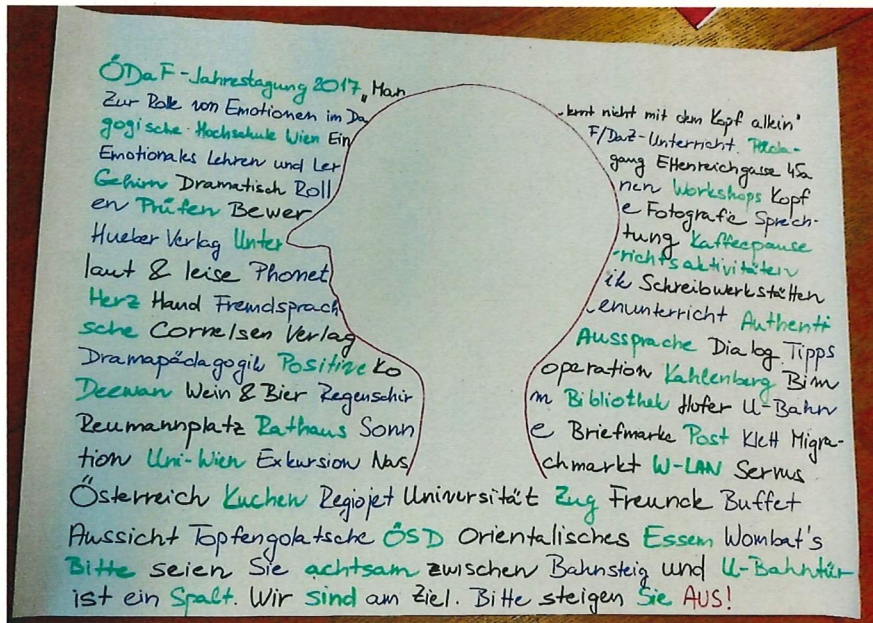 ÖDaF-Jahrestagung 2017 „Man lernt nicht mit dem Kopf allein“
Zur Rolle von Emotionen im DaF/DaZ-Unterricht. Päda-
gogische Hochschule Wien Eingang Ettenreichgasse 45a
Emotionales Lehren und Lernen Workshops Kopf
Gehirn Dramatisch Rolle Fotografie Sprech-
en Prüfen Bewertung Kaffeepause
Hueber Verlag Unterrichtsaktivitäten
laut & leise Phonetik Schreibwerkstätten
Herz Hand Fremdsprachenunterricht Authenti
sche Aussprache Dialog Tipps
Cornelsen Verlag
Dramapädagogik Positive Kooperation Kahlenberg Bim
Deewan Wein & Bier Regenschirm Bibliothek Hofer U-Bahn
Reumannplatz Rathaus Sonne Briefmarke Post Klett Migra-
tion Uni-Wien Exkursion Naschmarkt W-LAN Servus
Österreich Kuchen Regiojet Universität Zug Freunde Buffet
Aussicht Topfengolatsche ÖSD Orientalisches Essen Wombat's
Bitte seien Sie achtsam zwischen Bahnsteig und U-Bahntür
ist ein Spalt. Wir sind am Ziel. Bitte steigen Sie AUS!